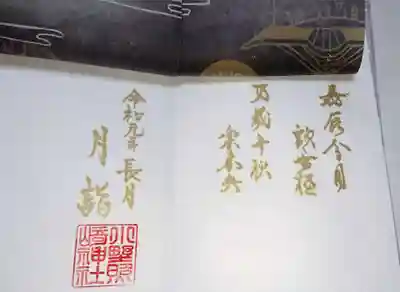 嘉辰令月
歓無極
万歳千秋
楽未央
令和元年長月
月詣
小野照
崎神社